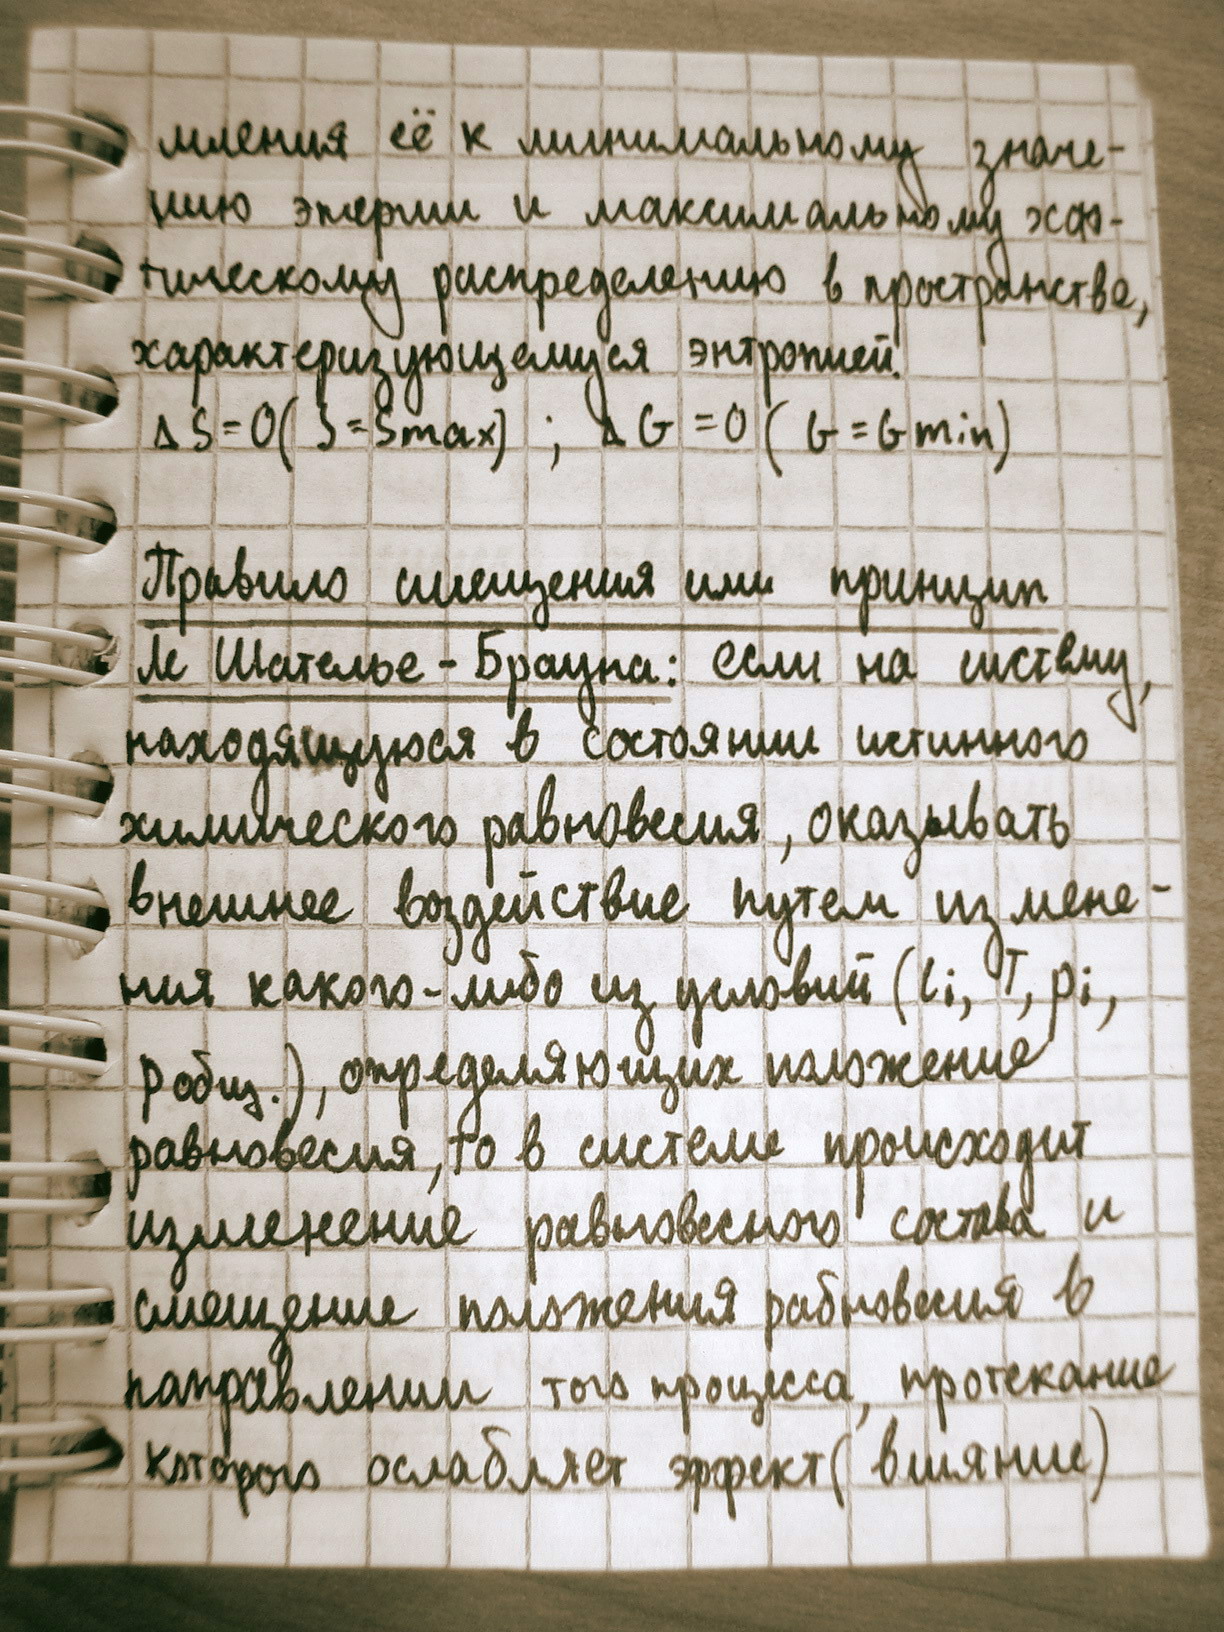 мления её к минимальному значе-
нию энергии и максимальному хао-
тическому распределению в пространстве,
характеризующемуся энтропией.
ΔS=0(S=Smax) ; ΔG=0(G=Gmin)
Правило смещения или принцип
Ле Шателье-Брауна: если на систему,
находящуюся в состоянии истинного
химического равновесия, оказывать
внешнее воздействие путем измене-
ния какого-либо из условий (Ci, T, pi,
Pобщ.), определяющих положение
равновесия, то в системе происходит
изменение равновесного состава и
смещение положения равновесия в
направлении того процесса, протекание
которого ослабляет эффект(влияние)